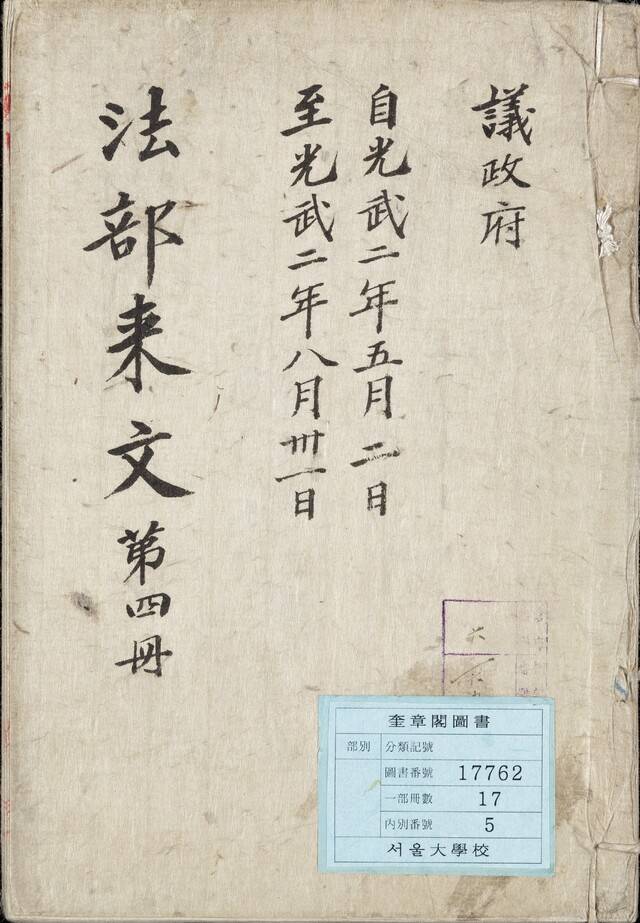 議政府
自光武二年五月二日
至光武二年八月卅一日
法部来文 第四冊
奎章閣圖書
部別 分類記號
圖書番號 17762
一部冊數 17
内別番號 5
서울大學校